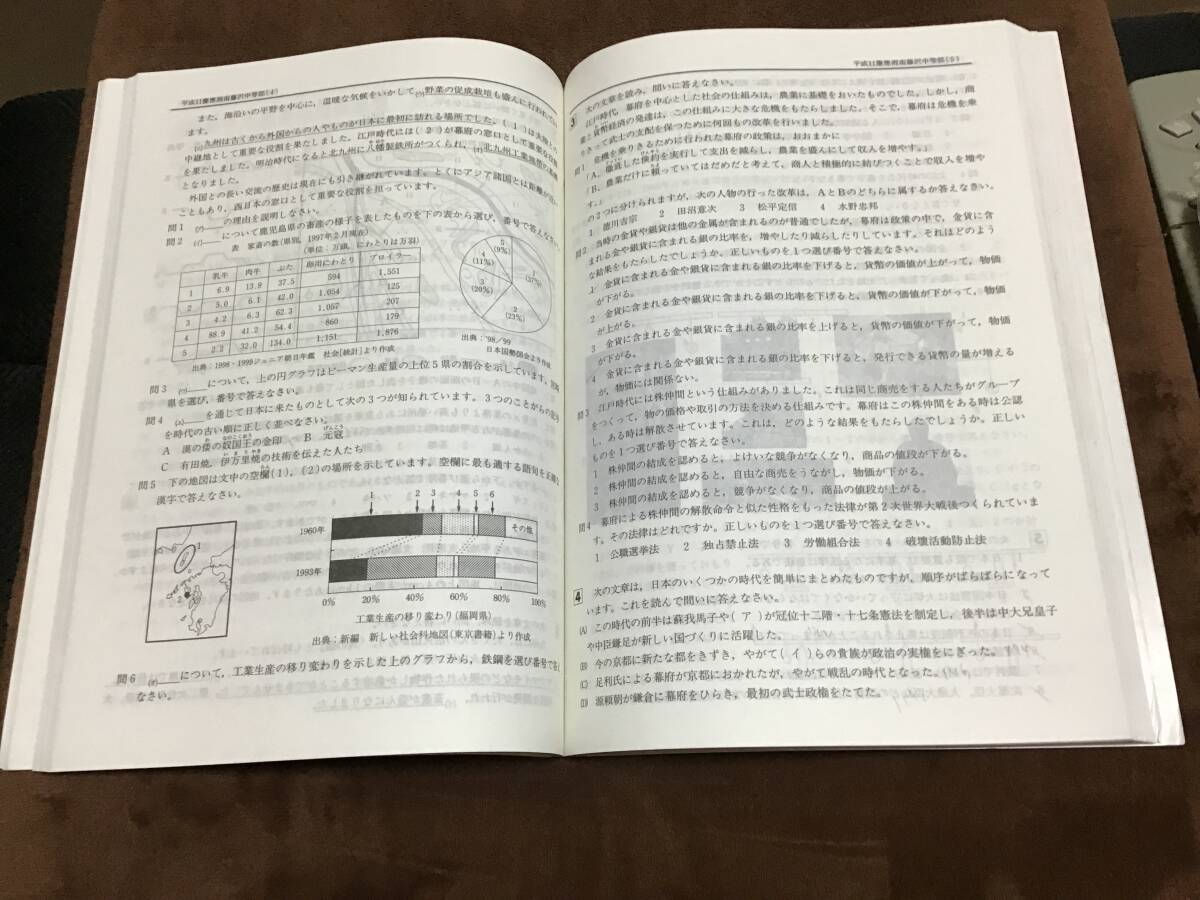 平成11慶應湘南藤沢中等部(4)
また，海沿いの平野を中心に，温暖な気候をいかして野菜の促成栽培も盛んに行われてい
ます。
九州は古くから外国からの人やものが日本に最初に訪れる場所でした。(1)は大陸との
中継地として重要な役割を果たしました。江戸時代には(2)が幕府の窓口として重要な役割
を果たしました。明治時代になると北九州に八幡製鉄所がつくられ，北九州工業地帯の基礎
となりました。
外国との長い交流の歴史は現在にも引き継がれています。とくにアジア諸国とは距離が近い
こともあり，西日本の窓口として重要な役割を担っています。
問1 の理由を説明しなさい。
問2 について鹿児島県の畜産の様子を表したものを下の表から選び，番号で答えなさい。
表 家畜の数(県別，1997年2月現在)
(単位：万頭，にわとりは万羽)
乳牛 肉牛 ぶた 卵用にわとり ブロイラー
1 6.9 13.9 37.5 594 1,551
2 5.0 6.1 42.0 1,054 125
3 4.2 6.3 62.3 1,057 207
4 88.9 41.2 54.4 860 179
5 2.2 32.0 134.0 1,151 1,876
出典：1998・1999ジュニア朝日年鑑 社会[統計]より作成
5 (9%)
4 (11%)
3 (20%)
2 (23%)
1 (37%)
出典：'98/99
日本国勢図会より作成
問3 について，上の円グラフはピーマン生産量の上位5県の割合を示しています。宮崎
県を選び，番号で答えなさい。
問4 を通じて日本に来たものとして次の3つが知られています。3つのことがらの記号
を時代の古い順に正しく並べなさい。
A 漢の倭の奴国王の金印 B 元寇
C 有田焼，伊万里焼の技術を伝えた人たち
問5 下の地図は文中の空欄(1)，(2)の場所を示しています。空欄に最も適する語句を正確な
漢字で答えなさい。
1
2
1 2 3 4 5 6
1960年 その他
1993年
0% 20% 40% 60% 80% 100%
工業生産の移り変わり(福岡県)
出典：新編 新しい社会科地図(東京書籍)より作成
問6 について，工業生産の移り変わりを示した上のグラフから，鉄鋼を選び番号で答え
なさい。
平成11慶應湘南藤沢中等部(5)
3 次の文章を読み，問いに答えなさい。
江戸時代，幕府を中心とした社会の仕組みは，農業に基礎をおいたものでした。しかし，商
業と貨幣経済の発達は，この仕組みに大きな危機をもたらしました。そこで，幕府は危機を乗
りきって武士の支配を保つために何回もの改革を行いました。
問1 危機を乗りきるために行われた幕府の政策は，おおまかに
「A，徹底した倹約を実行して支出を減らし，農業を盛んにして収入を増やす。」
「B，農業だけに頼っていてはだめだと考えて，商人と積極的に結びつくことで収入を増や
す。」
の2つに分けられますが，次の人物の行った改革は，AとBのどちらに属するか答えなさい。
1 徳川吉宗 2 田沼意次 3 松平定信 4 水野忠邦
問2 当時の金貨や銀貨は他の金属が含まれるのが普通でしたが，幕府は政策の中で，金貨に含
まれる金や銀貨に含まれる銀の比率を，増やしたり減らしたりしています。それはどのよう
な結果をもたらしたでしょうか。正しいものを1つ選び番号で答えなさい。
1 金貨に含まれる金や銀貨に含まれる銀の比率を下げると，貨幣の価値が上がって，物価
が下がる。
2 金貨に含まれる金や銀貨に含まれる銀の比率を下げると，貨幣の価値が下がって，物価
が上がる。
3 金貨に含まれる金や銀貨に含まれる銀の比率を上げると，貨幣の価値が下がって，物価
が下がる。
4 金貨に含まれる金や銀貨に含まれる銀の比率を下げると，発行できる貨幣の量が増える
が，物価には関係ない。
問3 江戸時代には株仲間という仕組みがありました。これは同じ商売をする人たちがグループ
をつくって，物の価格や取引の方法を決める仕組みです。幕府はこの株仲間をある時は公認
し，ある時は解散させています。これは，どのような結果をもたらしたでしょうか。正しい
ものを1つ選び番号で答えなさい。
1 株仲間の結成を認めると，よけいな競争がなくなり，商品の値段が下がる。
2 株仲間の結成を認めると，自由な商売をうながし，物価が下がる。
3 株仲間の結成を認めると，競争がなくなり，商品の値段が上がる。
問4 幕府による株仲間の解散命令と似た性格をもった法律が第2次世界大戦後つくられていま
す。その法律はどれですか。正しいものを1つ選び番号で答えなさい。
1 公職選挙法 2 独占禁止法 3 労働組合法 4 破壊活動防止法
4 次の文章は，日本のいくつかの時代を簡単にまとめたものですが，順序がばらばらになって
います。これを読んで問いに答えなさい。
(A) この時代の前半は蘇我馬子や(ア)が冠位十二階・十七条憲法を制定し，後半は中大兄皇子
や中臣鎌足が新しい国づくりに活躍した。
(B) 今の京都に新たな都をきずき，やがて(イ)らの貴族が政治の実権をにぎった。
(C) 足利氏による幕府が京都におかれたが，やがて戦乱の時代となった。
(D) 源頼朝が鎌倉に幕府をひらき，最初の武士政権をたてた。